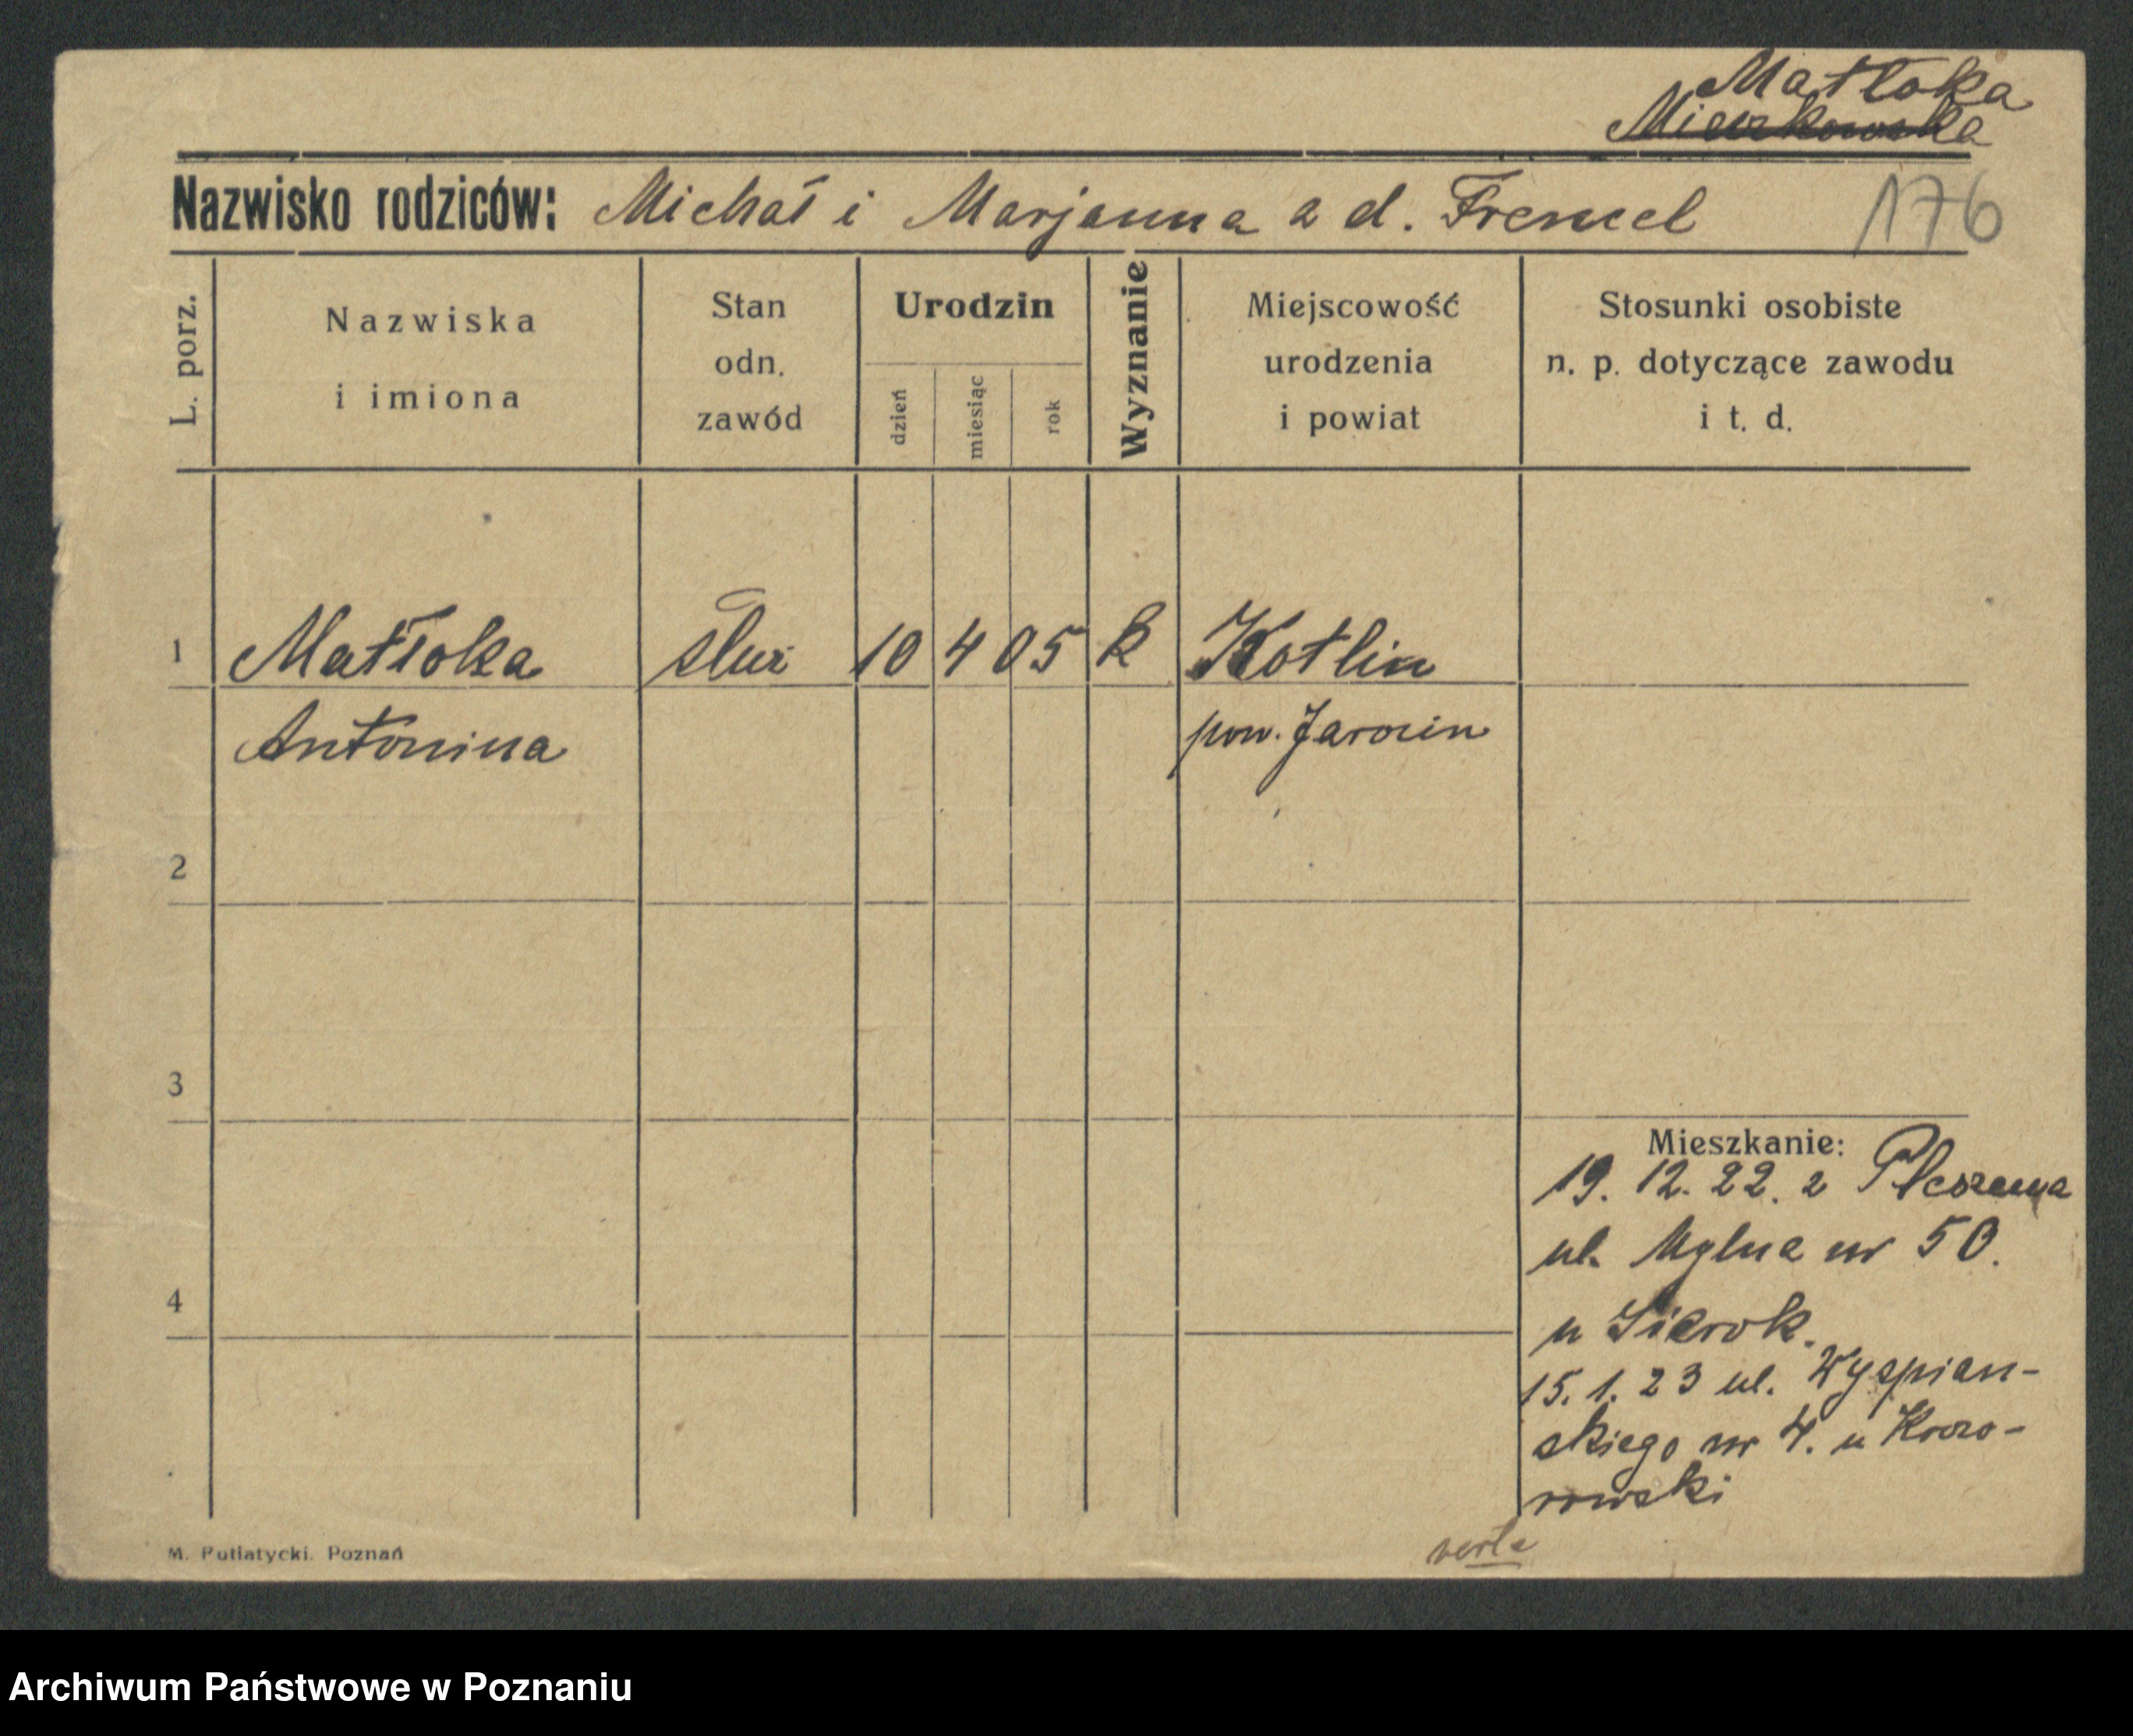 Matłoka
Mieszkowska
Nazwisko rodziców: Michał i Marjanna z d. Frencel
176
L. porz.
Nazwiska
i imiona
Stan
odn.
zawód
Urodzin
dzień
miesiąc
rok
Wyznanie
Miejscowość
urodzenia
i powiat
Stosunki osobiste
n. p. dotyczące zawodu
i t. d.
1 Matłoka służ 10 4 05 k Kotlin
Antonina pow. Jarocin
2
3
Mieszkanie:
19. 12. 22. z Pleszewa
ul. Mylna nr 50.
4
u Sierok.
15. 1. 23 ul. Wyspian-
skiego nr 4. u
rowski
verte
M. Putiatycki. Poznań
Archiwum Państwowe w Poznaniu